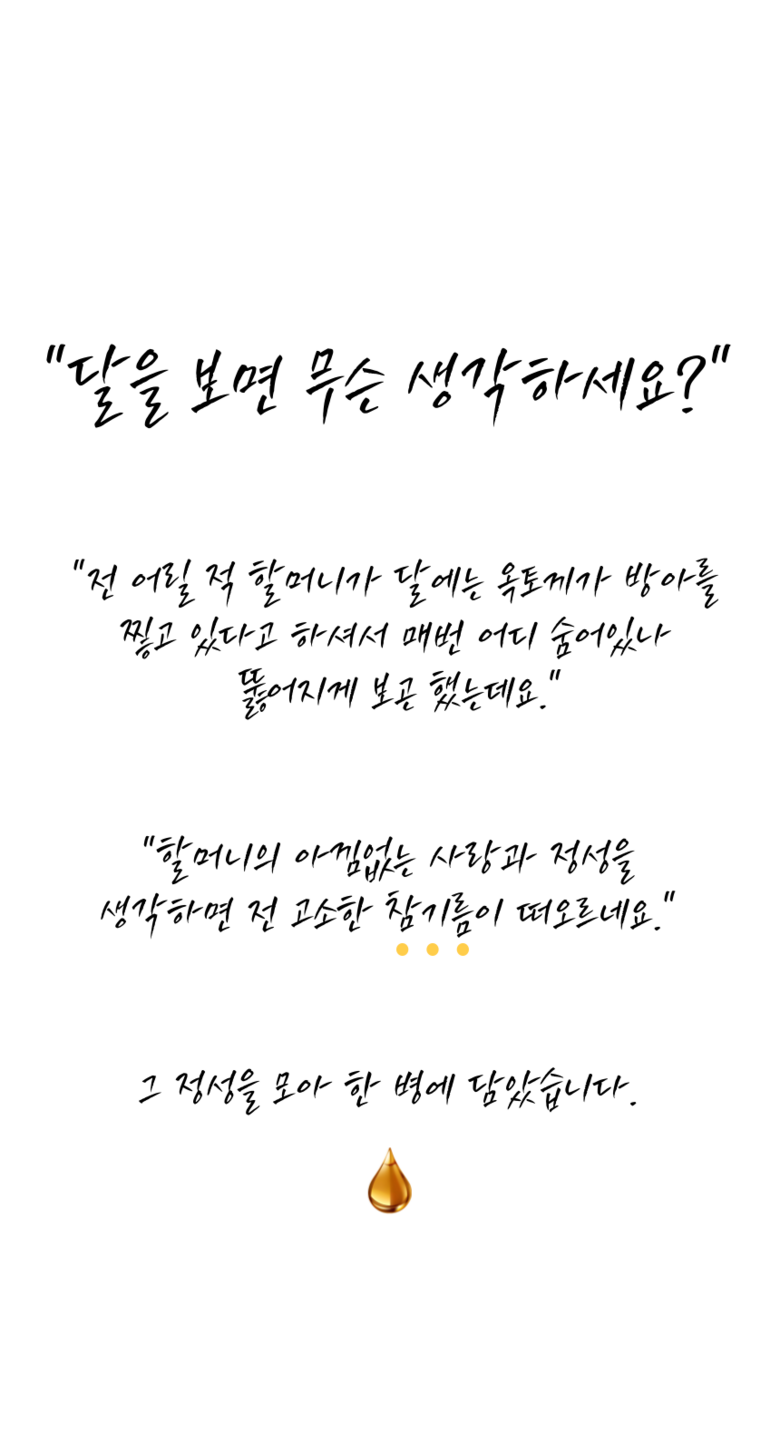 "달을 보면 무슨 생각하세요?"
"전 어릴 적 할머니가 달에는 옥토끼가 방아를
찧고 있다고 하셔서 매번 어디 숨어있나
뚫어지게 보곤 했는데요."
"할머니의 아낌없는 사랑과 정성을
생각하면 전 고소한 참기름이 떠오르네요."
그 정성을 모아 한 병에 담았습니다.